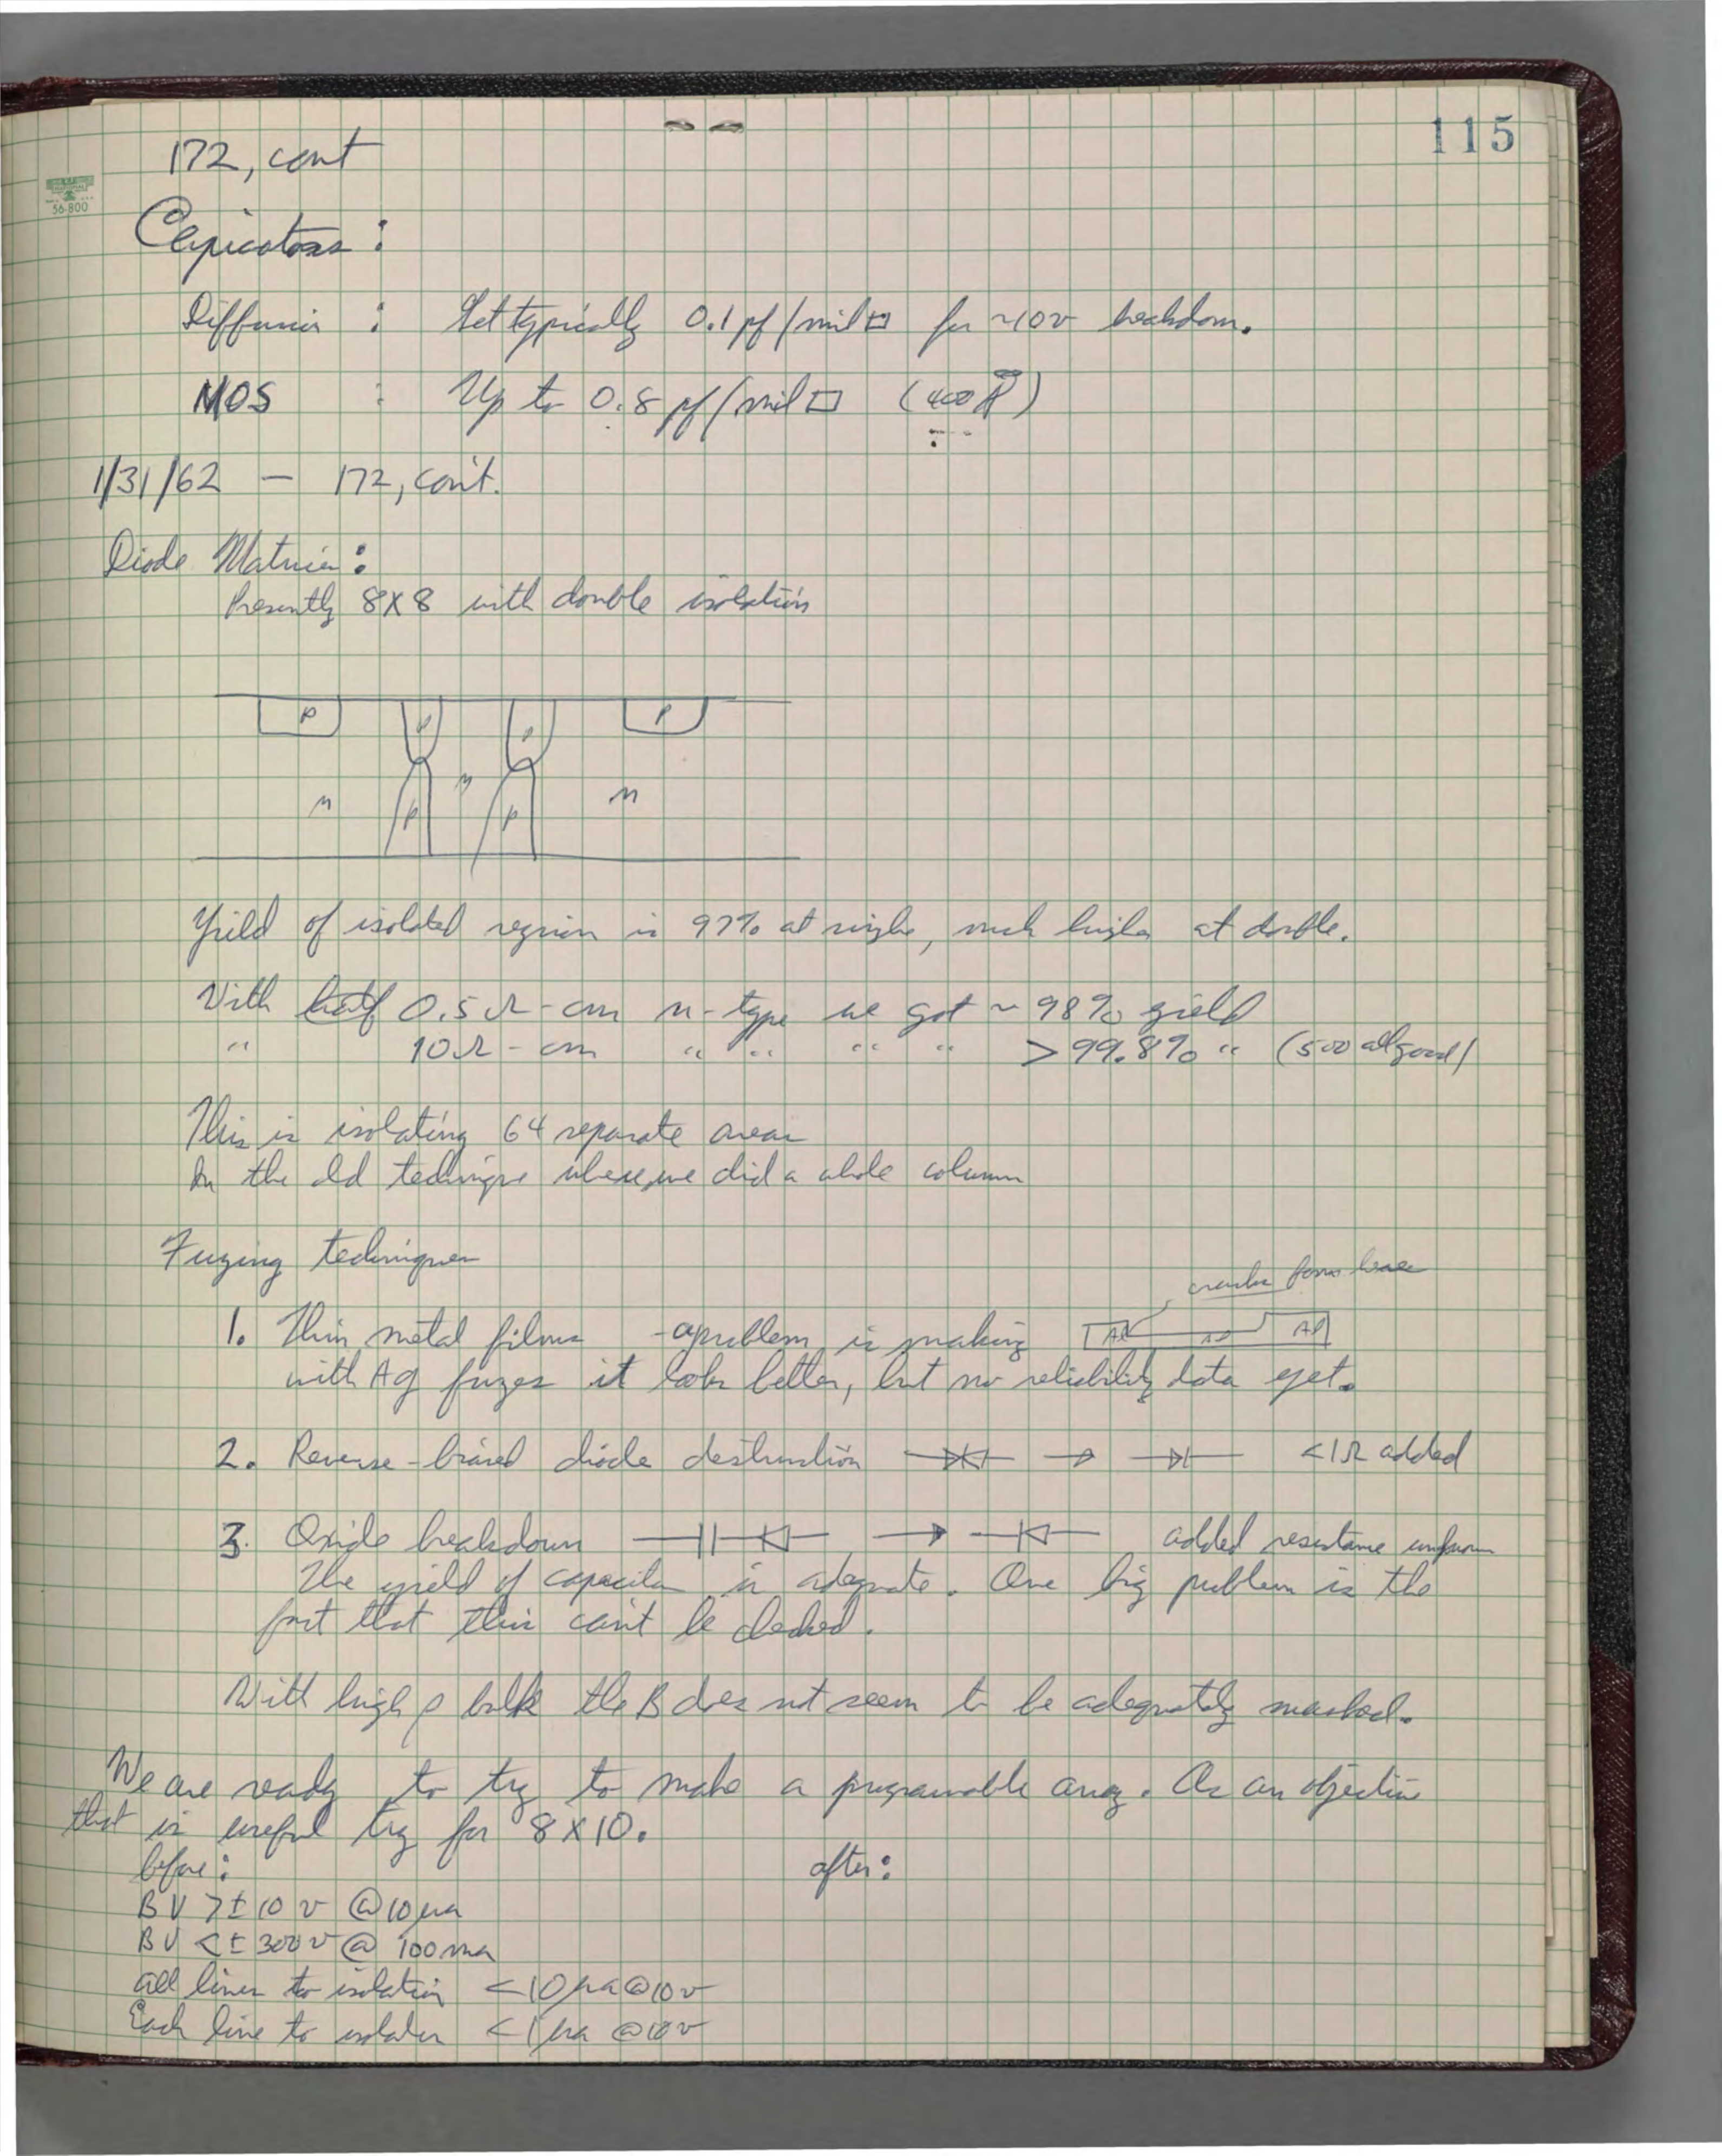 115
172, cont
56-800
Capicators :
Diffusion : Get typically 0.1 pf/mil□ for ~10v breakdown.
MOS : Up to 0.8 pf/mil□ (400Å)
1/31/62 — 172, con't.
Diode Matrices:
Presently 8X8 with double isolation
P P P P
n P n P n
Yield of isolated region is 97% at single, much higher at double.
With 0.5Ω-cm n-type we got ~98% yield
" 10Ω-cm " " " " >99.8% " (500 all good)
This is isolating 64 separate areas
In the old technique where we did a whole column
Fuzing techniques
cracks form here
1. Thin metal films - a problem is making Al Al
with Ag fuzes it looks better, but no reliability data yet.
2. Reverse-biased diode destruction → <1Ω added
3. Oxide breakdown → added resistance unknown
The yield of capacitors is adequate. One big problem is the
fact that this can't be checked.
With high ρ bulk the B does not seem to be adequately masked.
We are ready to try to make a programable array. As an objective
that is useful try for 8X10.
before: after:
BV >± 10 v @10μa
BV <± 300v @ 100ma
all lines to isolation <10μa@10v
Each line to isolation <1μa @10v